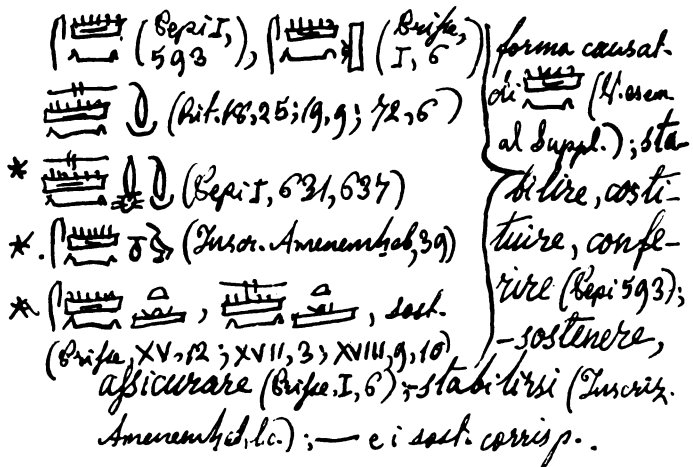 𓋴𓏠𓈖 (Pepi I, 593), 𓋴𓏠𓈖𓏛 (Prisse, I, 6)
𓊃𓏠𓈖 (Rit. 18, 25; 19, 9; 72, 6)
* 𓊃𓏠𓈖 (Pepi I, 631, 637)
*. 𓋴𓏠𓈖 (Inscr. Amenemheb, 39)
* 𓋴𓏠𓈖, 𓊃𓏠𓈖, sost.
(Prisse, XV, 12; XVII, 3; XVIII, 9, 10)
forma causat.
di 𓏠𓈖 (V. esem
al Suppl.); sta-
bilire, costi-
tuire, confe-
rire (Pepi 593);
- sostenere,
assicurare (Prisse, I, 6); - stabilirsi (Inscriz.
Amenemheb, l.c.); — e i sost. corrisp..